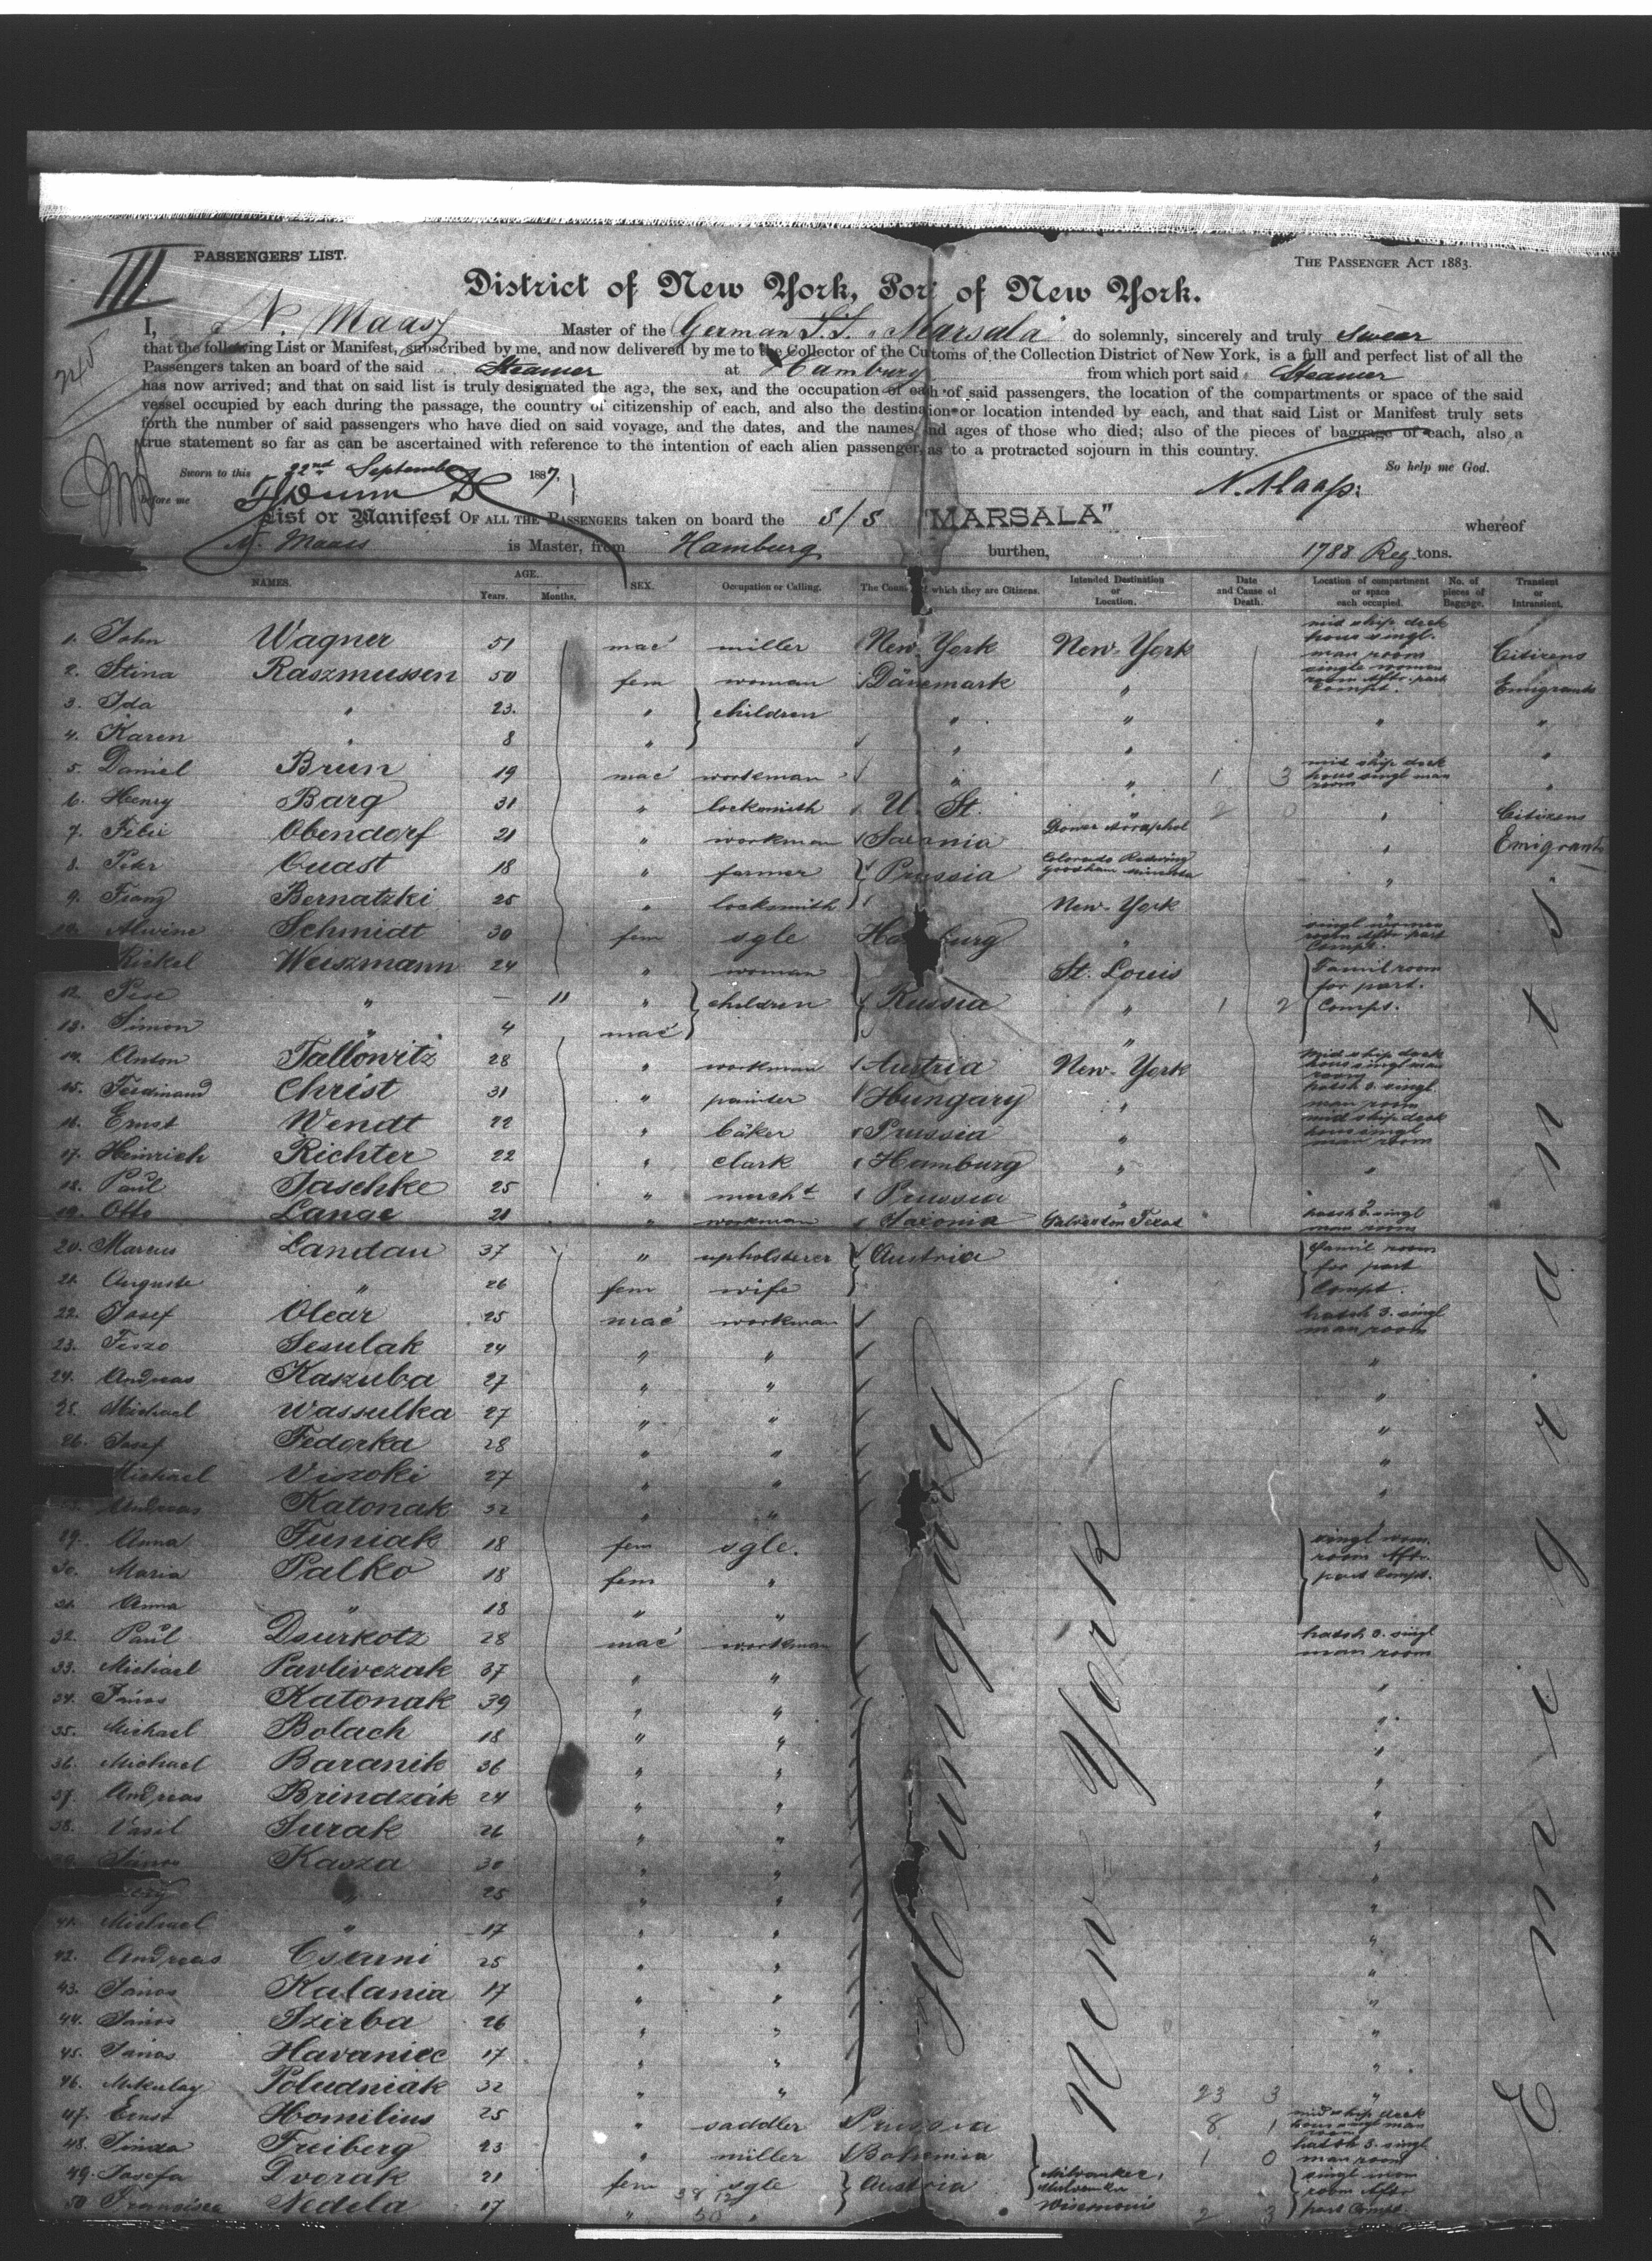 III
PASSENGERS' LIST.
THE PASSENGER ACT 1883.
District of New York, Port of New York.
245
I, N. Maass Master of the German S.S. "Marsala" do solemnly, sincerely and truly swear
that the following List or Manifest, subscribed by me, and now delivered by me to the Collector of the Customs of the Collection District of New York, is a full and perfect list of all the
Passengers taken an board of the said Steamer at Hamburg from which port said Steamer
has now arrived; and that on said list is truly designated the age, the sex, and the occupation of each of said passengers, the location of the compartments or space of the said
vessel occupied by each during the passage, the country of citizenship of each, and also the destination or location intended by each, and that said List or Manifest truly sets
forth the number of said passengers who have died on said voyage, and the dates, and the names and ages of those who died; also of the pieces of baggage of each, also a
true statement so far as can be ascertained with reference to the intention of each alien passenger as to a protracted sojourn in this country.
So help me God.
Sworn to this 22nd September 1887,
before me
N. Maass.
List or Manifest OF ALL THE PASSENGERS taken on board the S/S "MARSALA" whereof
N. Maass is Master, from Hamburg burthen, 1788 Reg. tons.
NAMES. AGE. Years. Months. SEX. Occupation or Calling. The Country of which they are Citizens. Intended Destination or Location. Date and Cause of Death. Location of compartment or space each occupied. No. of pieces of Baggage. Transient or Intransient.
1. John Wagner 51 mac miller New-York New-York mid ship deck hous singl. man room Citizens
2. Stina Raszmussen 50 fem woman Dänemark " single women room Aftr. part Compt. Emigrants
3. Ida " 23. " children " " " "
4. Karen " 8 " " " " "
5. Daniel Brun 19 mac workman " " 1 3 mid ship deck hous singl man room "
6. Henry Barg 31 " locksmith U. St. " 2 0 " Citizens
7. Obendorf 21 " workman Saxonia " Emigrants
8. Peter Quast 18 " farmer Prussia Colorado Redwing "
9. Franz Bernatzki 25 " locksmith New-York
10. Alwine Schmidt 30 fem sgle Hamburg " singl women room Aftr. part Compt.
Rickel Weiszmann 24 " woman St. Louis Famil room for part.
12. Pese " — 11 " children Russia " 1 2 Compt.
13. Simon " 4 mac "
14. Anton Tallowitz 28 " workman Austria New-York mid ship deck hous singl man room
15. Ferdinand Christ 31 " painter Hungary " hatsh 3. singl man room
16. Ernst Wendt 22 " bäker Prussia " mid ship deck hous singl man room
17. Heinrich Richter 22 " clark Hamburg " "
18. Paul Jaschke 25 " mercht Prussia " "
19. Otto Lange 21 " workman Saxonia Galveston Texas hatsh 3. singl man room
20. Marcus Landau 37 " upholsterer Austria Famil room for part
21. Auguste " 26 fem wife Compt.
22. Josef Olear 25 mac workman hatsh 3. singl man room
23. Sesulak 24 " " "
24. Andreas Kaszuba 27 " " "
25. Michael Wassulka 27 " " "
26. Josef Fedorka 28 " " "
Michael Viszoki 27 " " "
Andreas Katonak 32 " "
29. Anna Funiak 18 fem sgle. singl wom. room Aftr.
30. Maria Palko 18 fem " part Compt.
31. Anna " 18 " "
32. Paul Dsurkotz 28 mac workman hatsh 3. singl man room
33. Michael Pavlivczak 37 " " "
34. János Katonak 39 " " "
35. Michael Bolach 18 " " "
36. Michael Baranik 36 " " "
37. Andreas Brindzák 24 " " "
38. Vasil Surak 26 " " "
39. János Kasza 30 " " "
" 25 " " "
41. Michael " 17 " " "
42. Andreas Cserni 25 " " "
43. János Kalania 17 " " "
44. János Szirba 26 " " "
45. János Havaniec 17 " " "
46. Mikulay Poludniak 32 " " 23 3 "
Hungary
New York
Emigrants
47. Ernst Homilius 25 " saddler Prussia 8 1 mid ship deck hous singl man room
48. Freiberg 23 " miller Bohemia 1 0 hatsh 3. singl man room
49. Josefa Dvorak 21 fem sgle Austria Milwaukee, singl wom room Aftr
50 Francisca Nedela 17 " " 2 3 part Compt.
38 12
50